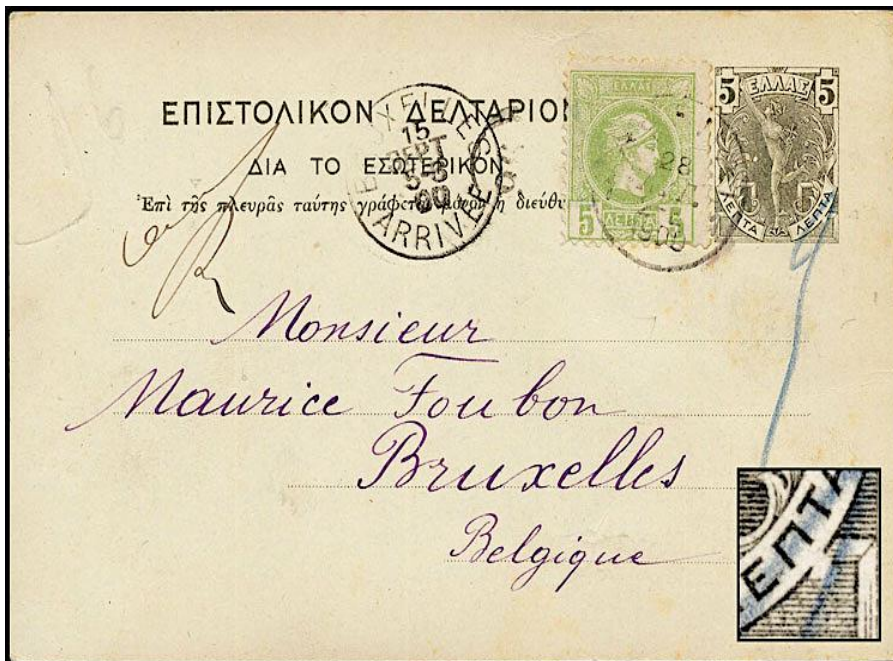 ΕΠΙΣΤΟΛΙΚΟΝ ΔΕΛΤΑΡΙΟΝ
ΔΙΑ ΤΟ ΕΣΩΤΕΡΙΚΟΝ
Ἐπὶ τῆς πλευρᾶς ταύτης γράφεται μόνον ἡ διεύθυ
15
SEPT
5-5
00
ARRIVEE
ΕΛΛΑΣ
5 ΛΕΠΤΑ 5
28
1900
5 ΕΛΛΑΣ 5
5
ΛΕΠΤΑ ΛΕΠΤΑ
Monsieur
Maurice Foubon
Bruxelles
Belgique
ΛΕΠΤΑ